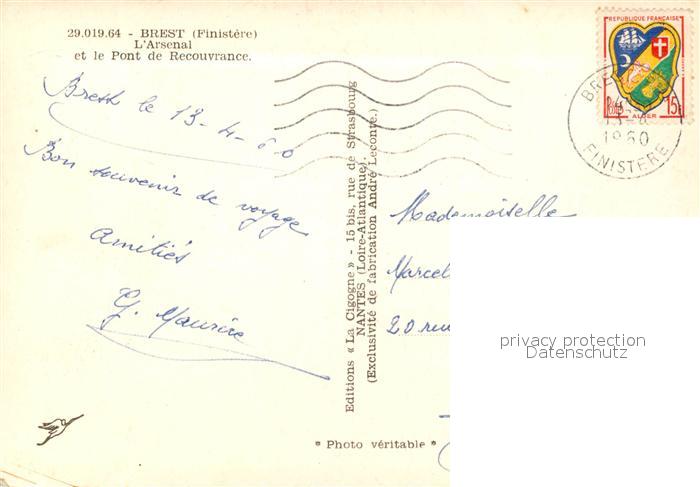 29.019.64 - BREST (Finistére)
L'Arsenal
et le Pont de Recouvrance.
Brest le 13-4-60
Bon souvenir de voyage
Amitiés
G. Maurice
Editions « La Cigogne » - 15 bis, rue de Strasbourg
NANTES (Loire-Atlantique).
(Exclusivité de fabrication André Leconte.)
* Photo véritable *
REPUBLIQUE FRANÇAISE
15F
ALGER
BREST
13-4
1960
FINISTERE
Mademoiselle
Marcel
20 rue
privacy protection
Datenschutz